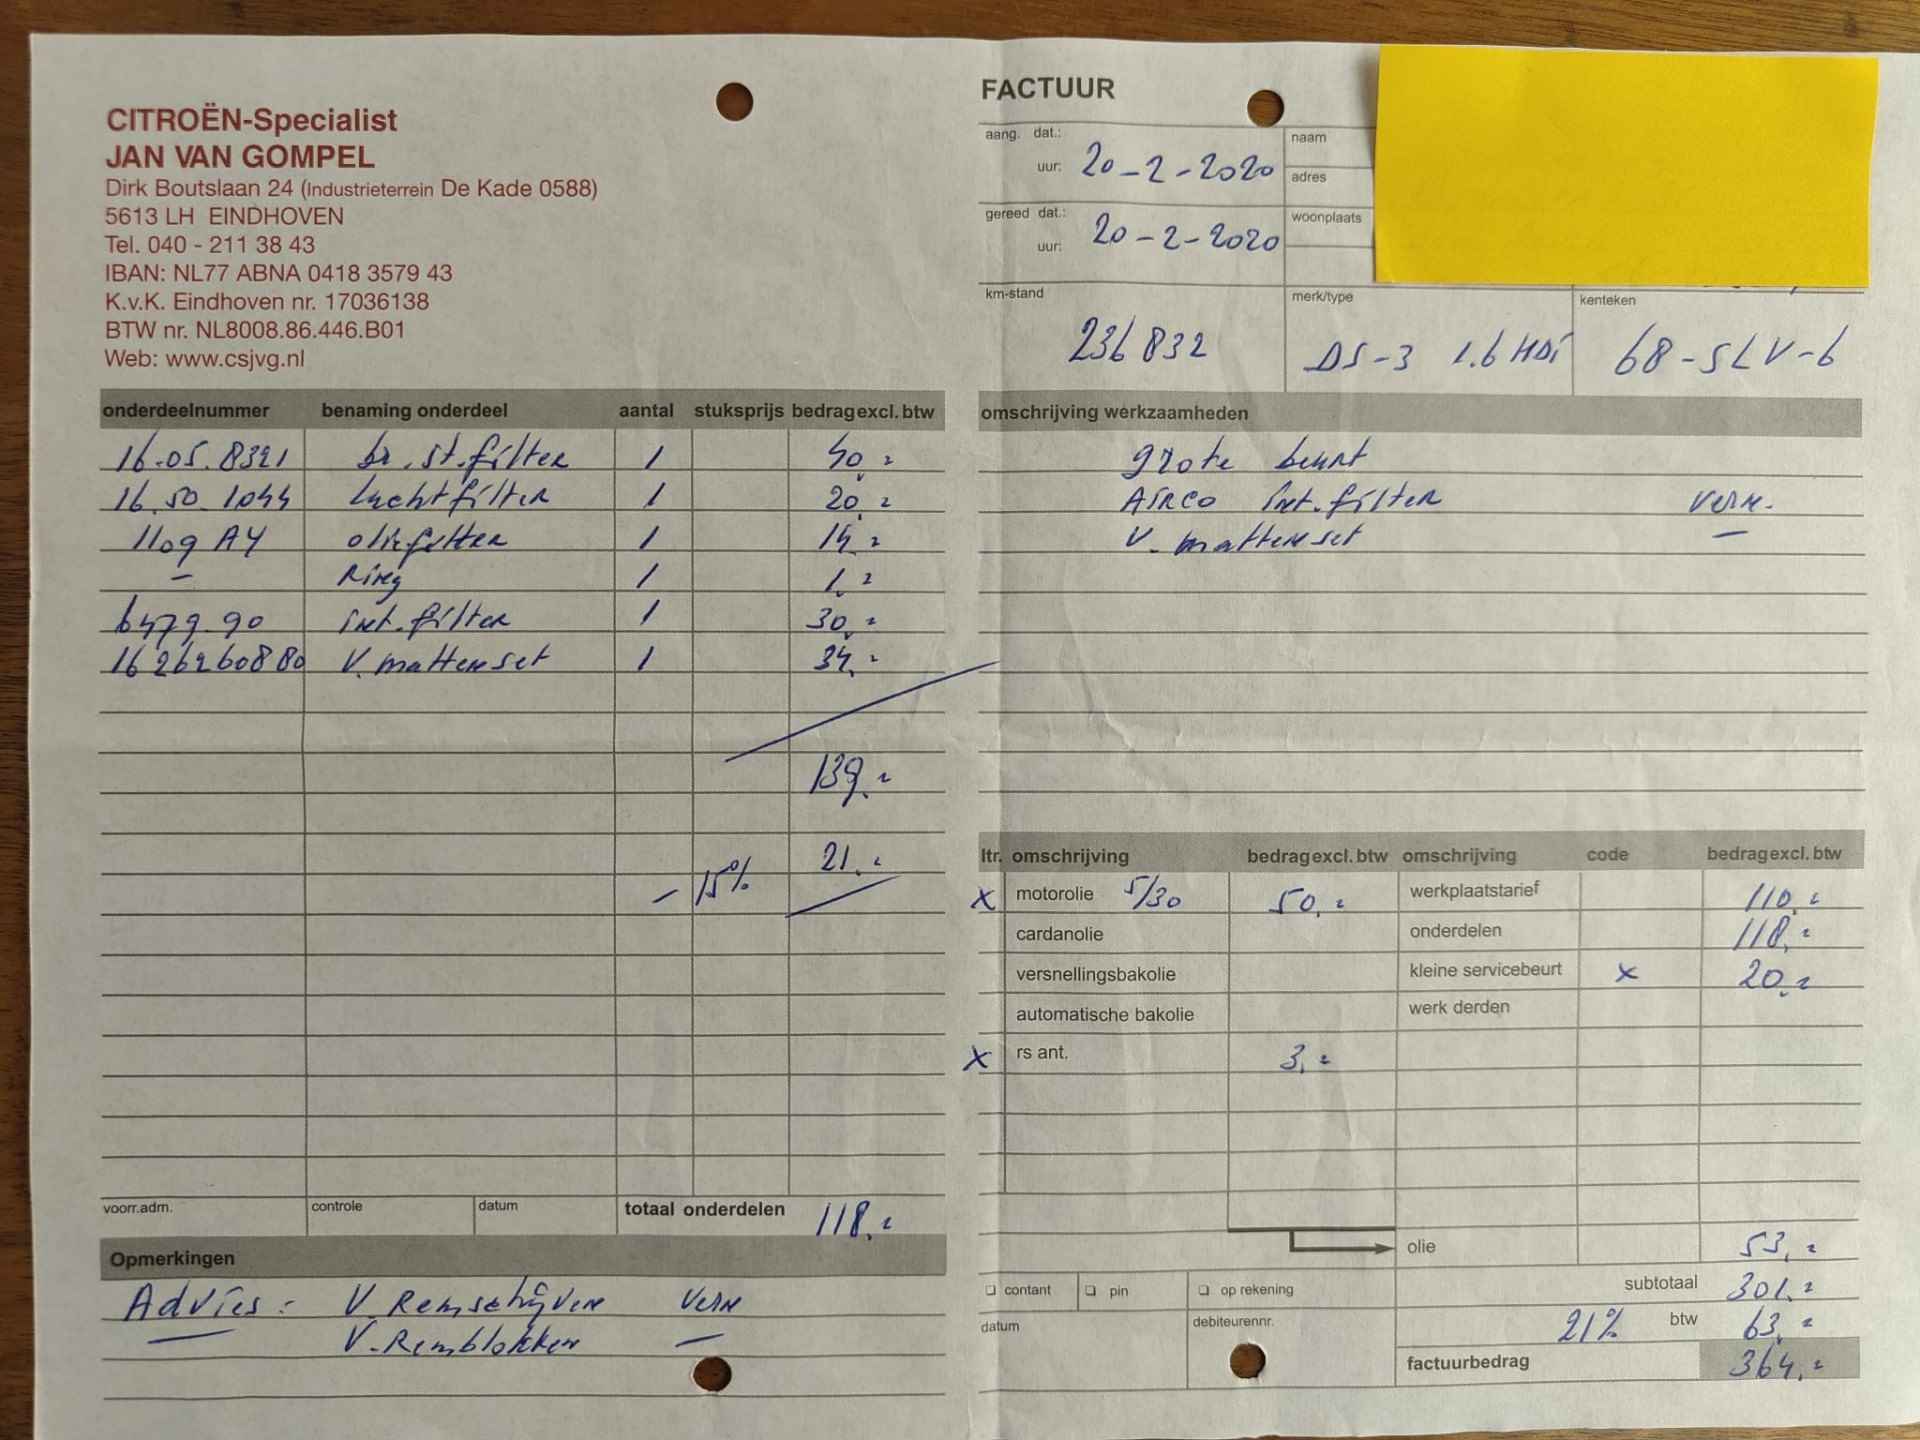 CITROËN-Specialist
JAN VAN GOMPEL
Dirk Boutslaan 24 (Industrieterrein De Kade 0588)
5613 LH EINDHOVEN
Tel. 040 - 211 38 43
IBAN: NL77 ABNA 0418 3579 43
K.v.K. Eindhoven nr. 17036138
BTW nr. NL8008.86.446.B01
Web: www.csjvg.nl
FACTUUR
aang. dat.:
uur: 20-2-2020
naam
adres
gereed dat.:
uur: 20-2-2020
woonplaats
km-stand merk/type kenteken
236832 DS-3 1.6 HDi 68-SLV-6
onderdeelnummer benaming onderdeel aantal stuksprijs bedrag excl. btw
16.05.8321 br.st.filter 1 40,=
16.50.1044 luchtfilter 1 20,=
1109 AY oliefilter 1 14,=
- Ring 1 1,=
6479.90 int.filter 1 30,=
1626260880 V.mattenset 1 34,=
139,=
- 15% 21,=
voorr.adm. controle datum totaal onderdelen 118,=
Opmerkingen
Advies: V Remschijven vern
V-Remblokken -
omschrijving werkzaamheden
grote beurt
Airco int.filter vern.
V. mattenset -
ltr. omschrijving bedrag excl. btw omschrijving code bedrag excl. btw
x motorolie 5/30 50,= werkplaatstarief 110,=
cardanolie onderdelen 118,=
versnellingsbakolie kleine servicebeurt x 20,=
automatische bakolie werk derden
x rs ant. 3,=
olie 53,=
contant pin op rekening subtotaal 301,=
datum debiteurennr. 21% btw 63,=
factuurbedrag 364,=